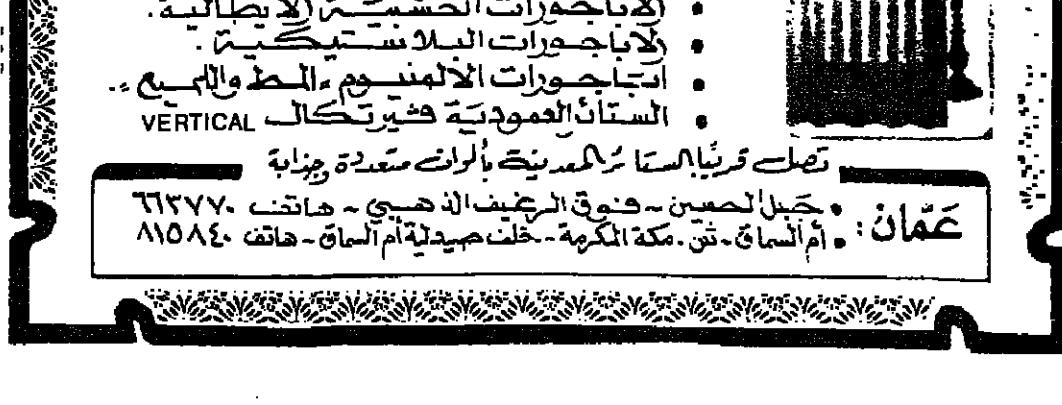 • الاباجورات الخشبية الايطالية.
• الاباجورات البلاستيكية.
• اباجورات الالمنيوم، المط والتجميع.
• الستائر العمودية فيرتكال VERTICAL
تصل قريبًا الستائر المعدنية بألوان متعددة وجذابة
عَمّان: • جبل الحسين - فوق الرغيف الذهبي - هاتف ٦٦٣٧٧٠
• أم السماق - ش. مكة المكرمة - خلف صيدلية أم السماق - هاتف ٨١٥٨٤٠